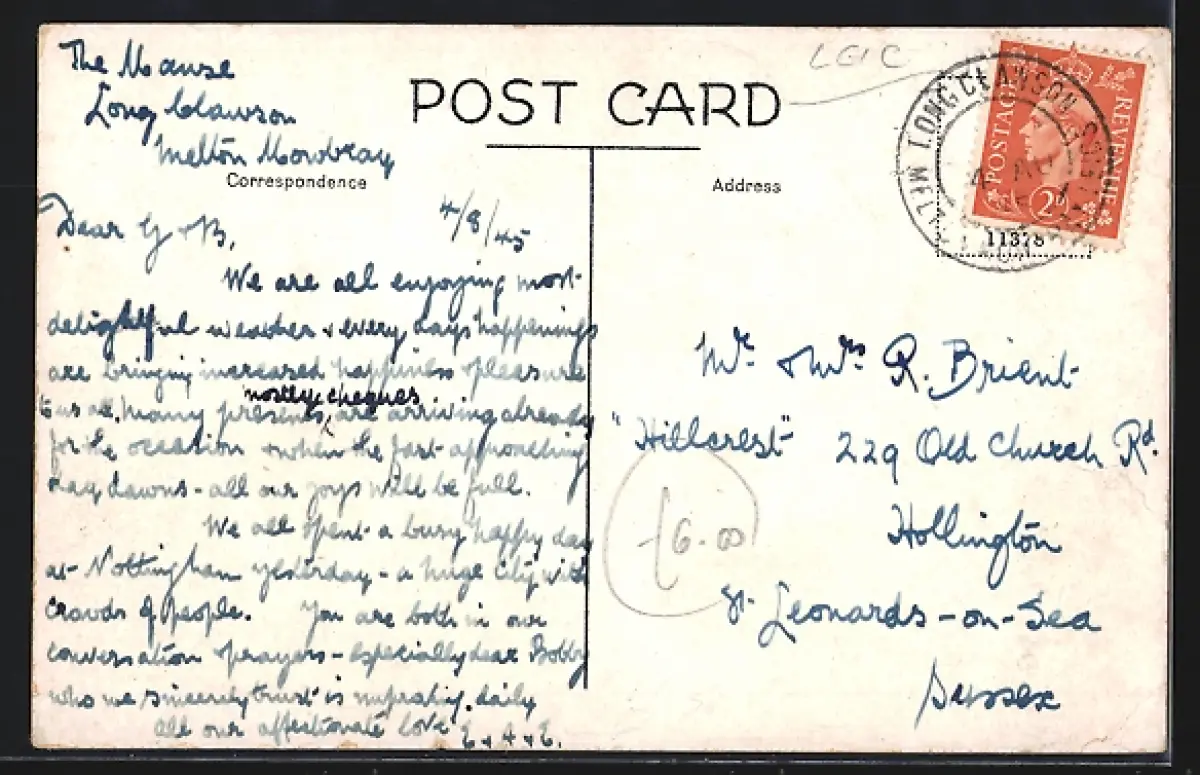 The Manse
Long Clawson
Melton Mowbray
POST CARD
Correspondence
Address
LEIC
LONG CLAWSON
MELT
POSTAGE
REVENUE
2D
11378
4/8/45
Dear G & B,
We are all enjoying most
delightful weather & every days happenings
are bringing increased happiness & pleasure
mostly cheques
to us all. Many presents, are arriving already
for the occasion & when the fast approaching
day dawns - all our joys will be full.
We all spent a busy happy day
at Nottingham yesterday - a huge city with
crowds of people. You are both in our
conversation & prayers - especially dear Bobby
who we sincerely trust is improving daily
All our affectionate love E & A & E.
Mr. & Mrs R. Brient
"Hillcrest" 229 Old Church Rd.
Hollington
St. Leonards-on-Sea
Sussex
£6.00